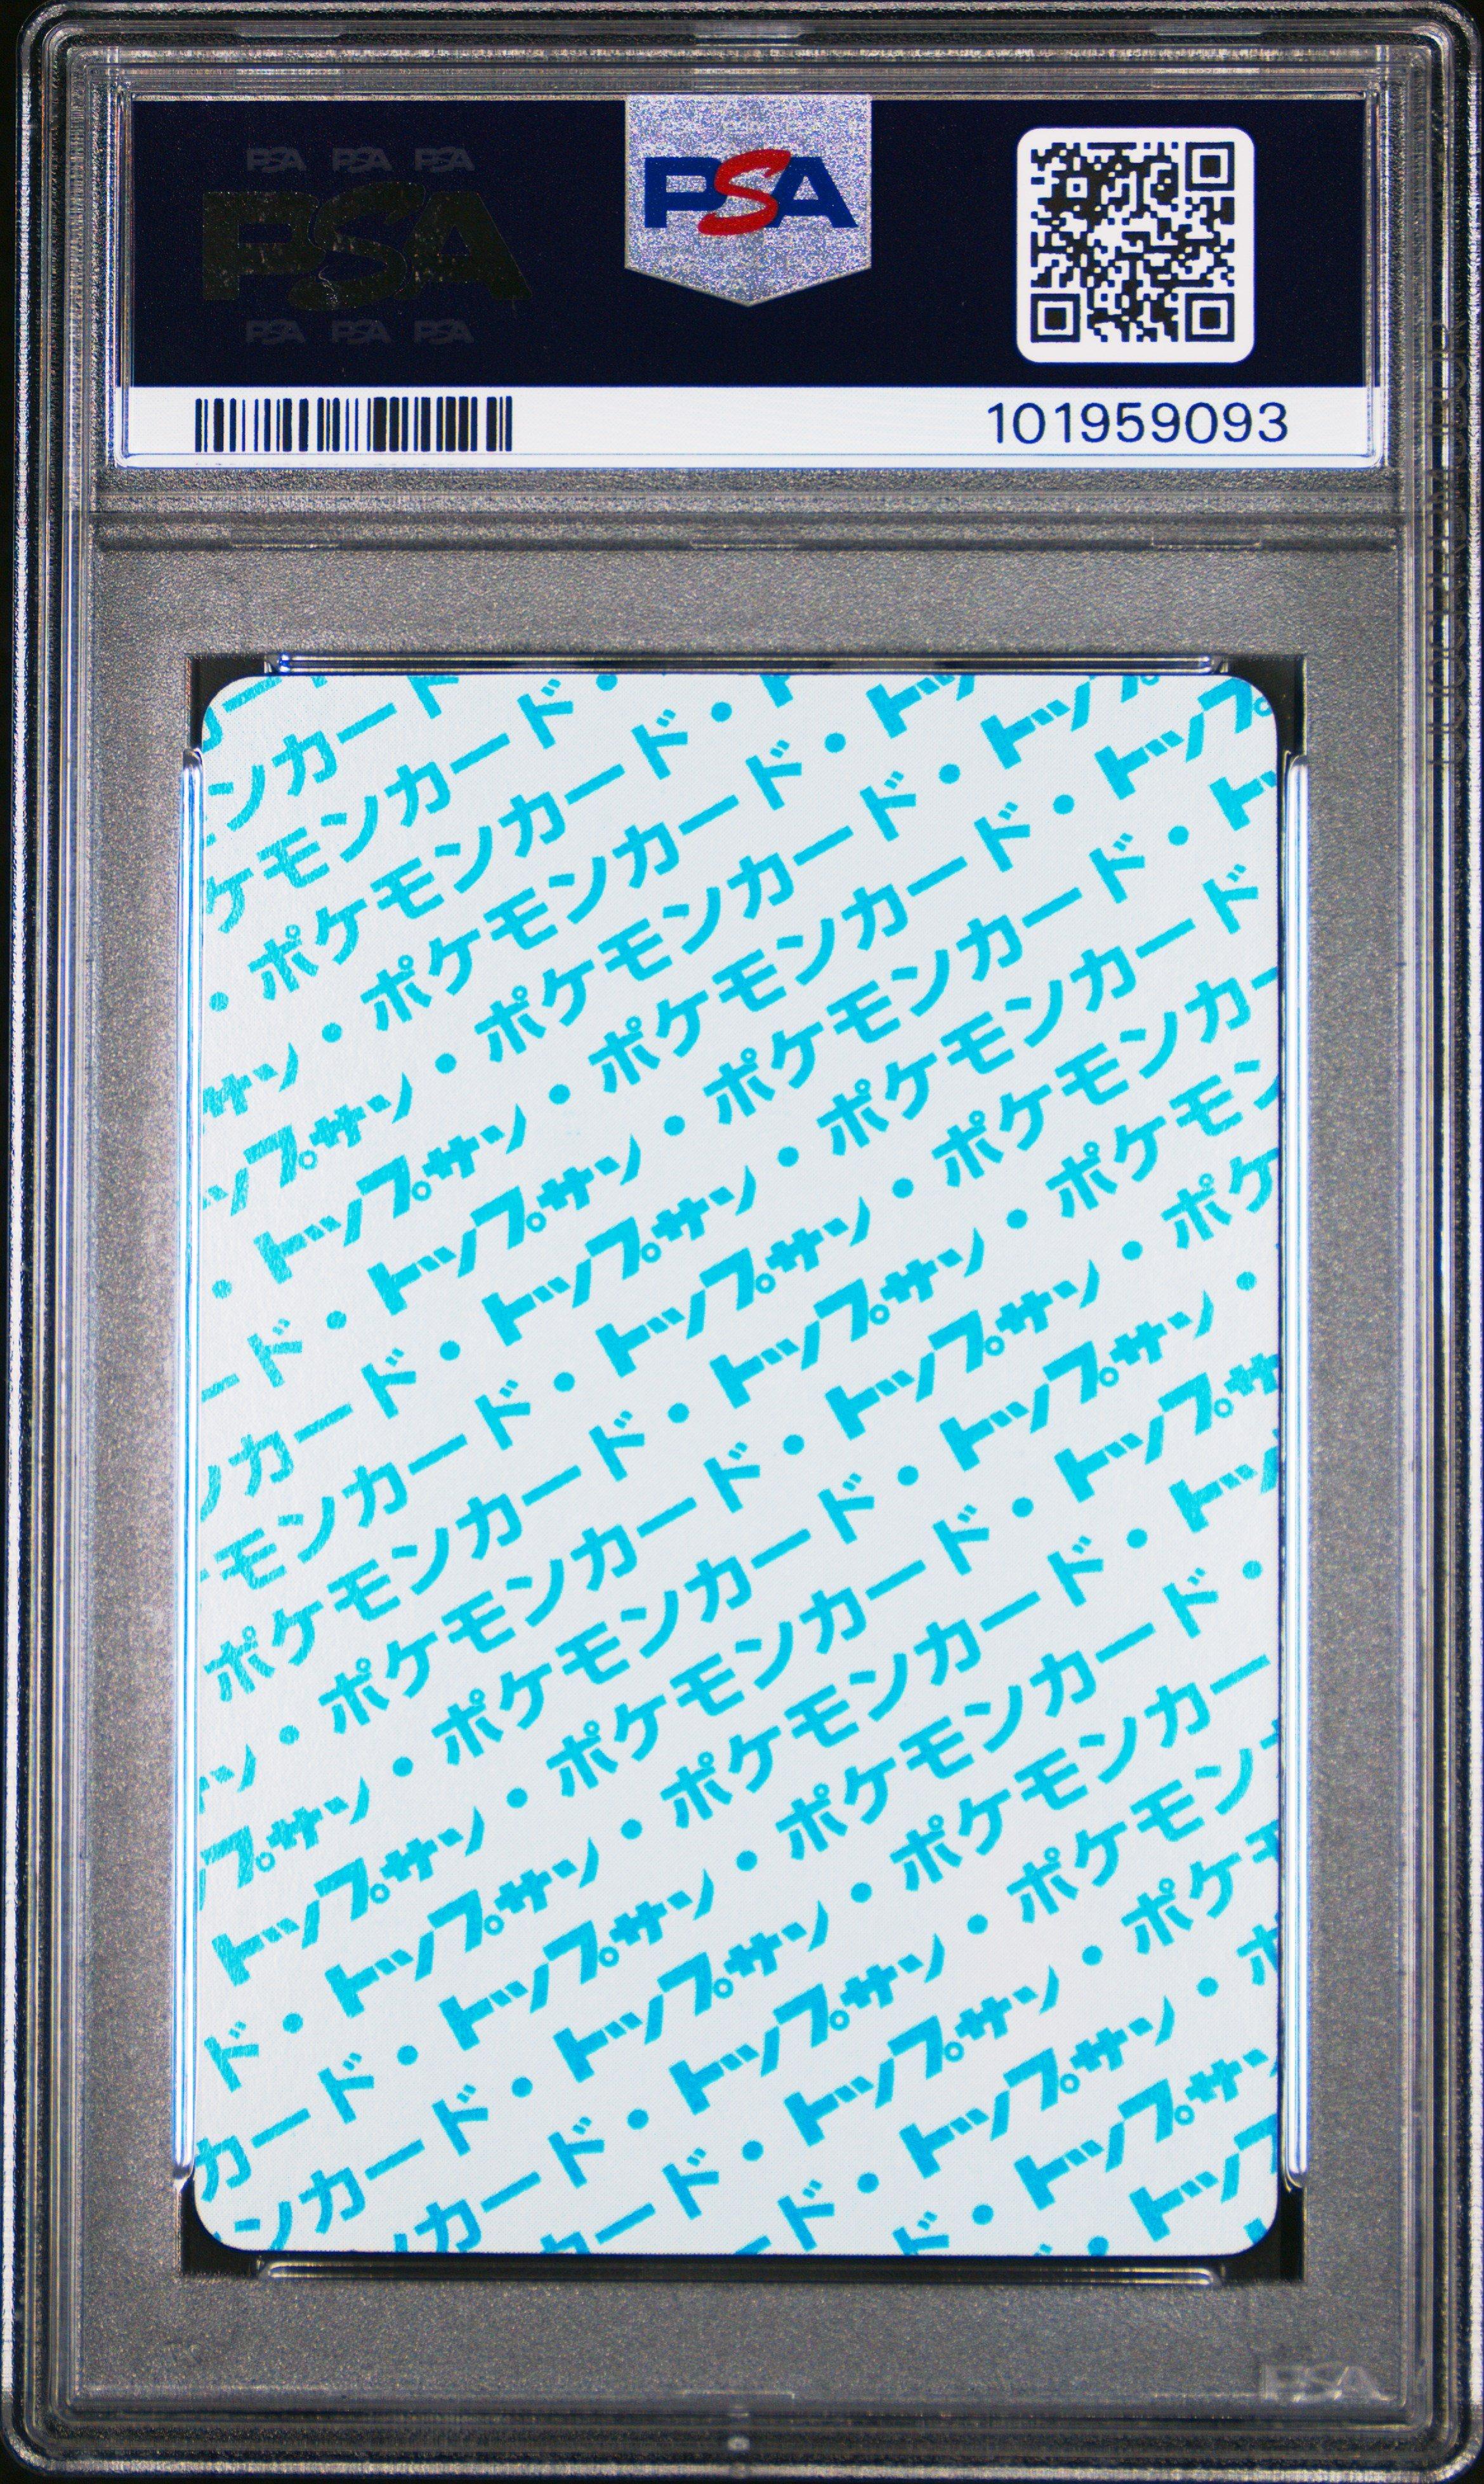 PSA PSA PSA
PSA
PSA PSA PSA
PSA
101959093
ンカード
ケモンカード・
・ポケモンカード・ト
サン・ポケモンカード・トッ
ップサン・ポケモンカード・トップ
・トップサン・ポケモンカード・トップ
ード・トップサン・ポケモンカード・トッ
ンカード・トップサン・ポケモンカード
モンカード・トップサン・ポケモンカー
ポケモンカード・トップサン・ポケモン
ン・ポケモンカード・トップサン・ポケ
プサン・ポケモンカード・トップサン・
トップサン・ポケモンカード・トップサ
ド・トップサン・ポケモンカード・トッ
カード・トップサン・ポケモンカード・
ンカード・トップサン・ポケモンカー
カード・トップサン・ポケモン
カード・トップサン・ポケ
ード・トップサン・ポ
ド・トップサン
・トップ
PSA